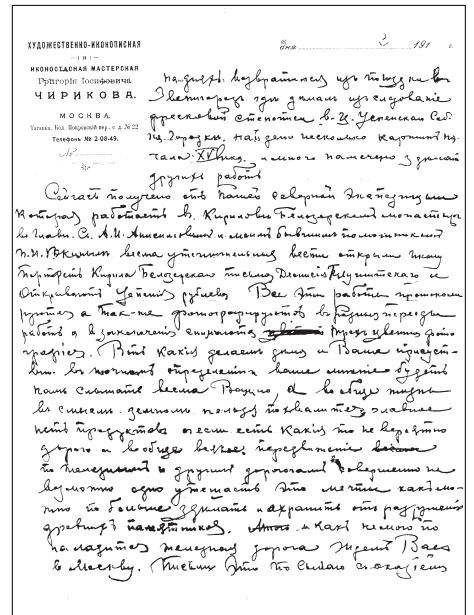 ХУДОЖЕСТВЕННО-ИКОНОПИСНАЯ
И
ИКОНОСТАСНАЯ МАСТЕРСКАЯ
Григорія Іосифовича
ЧИРИКОВА.
МОСКВА.
Таганка, Бол. Покровскій пер., с. д. № 22
Телефонъ № 2-08-49.
№
дня 2 191 г.
на дняхъ возвратился изъ поѣздки въ
Звенигородъ гдѣ дѣлали изслѣдованіе
фресковой стѣнописи въ Ц. Успенскій Соб
на Городкѣ, найдено несколько картинъ на
чала XV вѣка, и много намечено сделать
другихъ работъ
Сейчасъ получено отъ нашей северной экспедиціи
которая работаетъ въ Кирилово Белозерскомъ монастыре
во главе. Съ А.И. Анисимовымъ и моимъ бывшимъ помощникомъ
П.И. Юкинымъ весьма утешительныя вести открыли икону
Портретъ Кирила Белозерскаго письма Дионисія Глушитскаго и
Открываютъ Успеніе Рублева Все эти работы протоколи
руются а так-же фотографируютъ въ разныя періоды
работъ а въ заключеніе снимаются трехцветной фото
графіей. Вотъ какія делаемъ дела и Ваше присутст-
віе въ точномъ определеніи ваше мненіе будетъ
намъ слышать весьма Важно, а вообще жизнь
въ смысле
нетъ продуктовъ а если есть какія то невероятно
дорого и вообще всякое передвиженіе
и другимъ дорогамъ совершенно не
возможно одно утешаетъ это мечты какъ мо-
жно по больше сделать и охранить отъ разрушенія
древнихъ памятниковъ. и какъ немного по
наладится железная дорога ждемъ Васъ
в Москву. Письмо это посылаю с